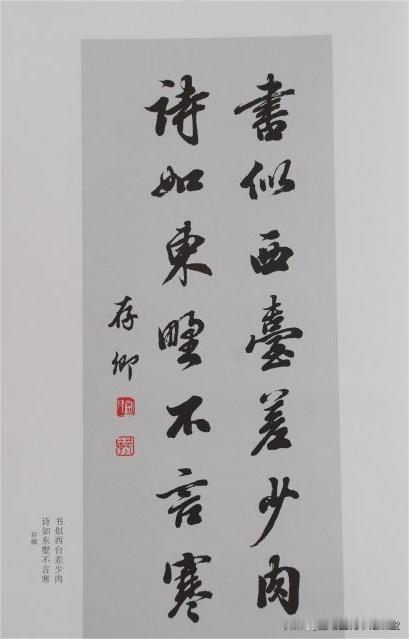 書似西臺差少肉
詩如東野不言寒
存卿
书似西台差少肉
诗如东墅不言寒
存卿